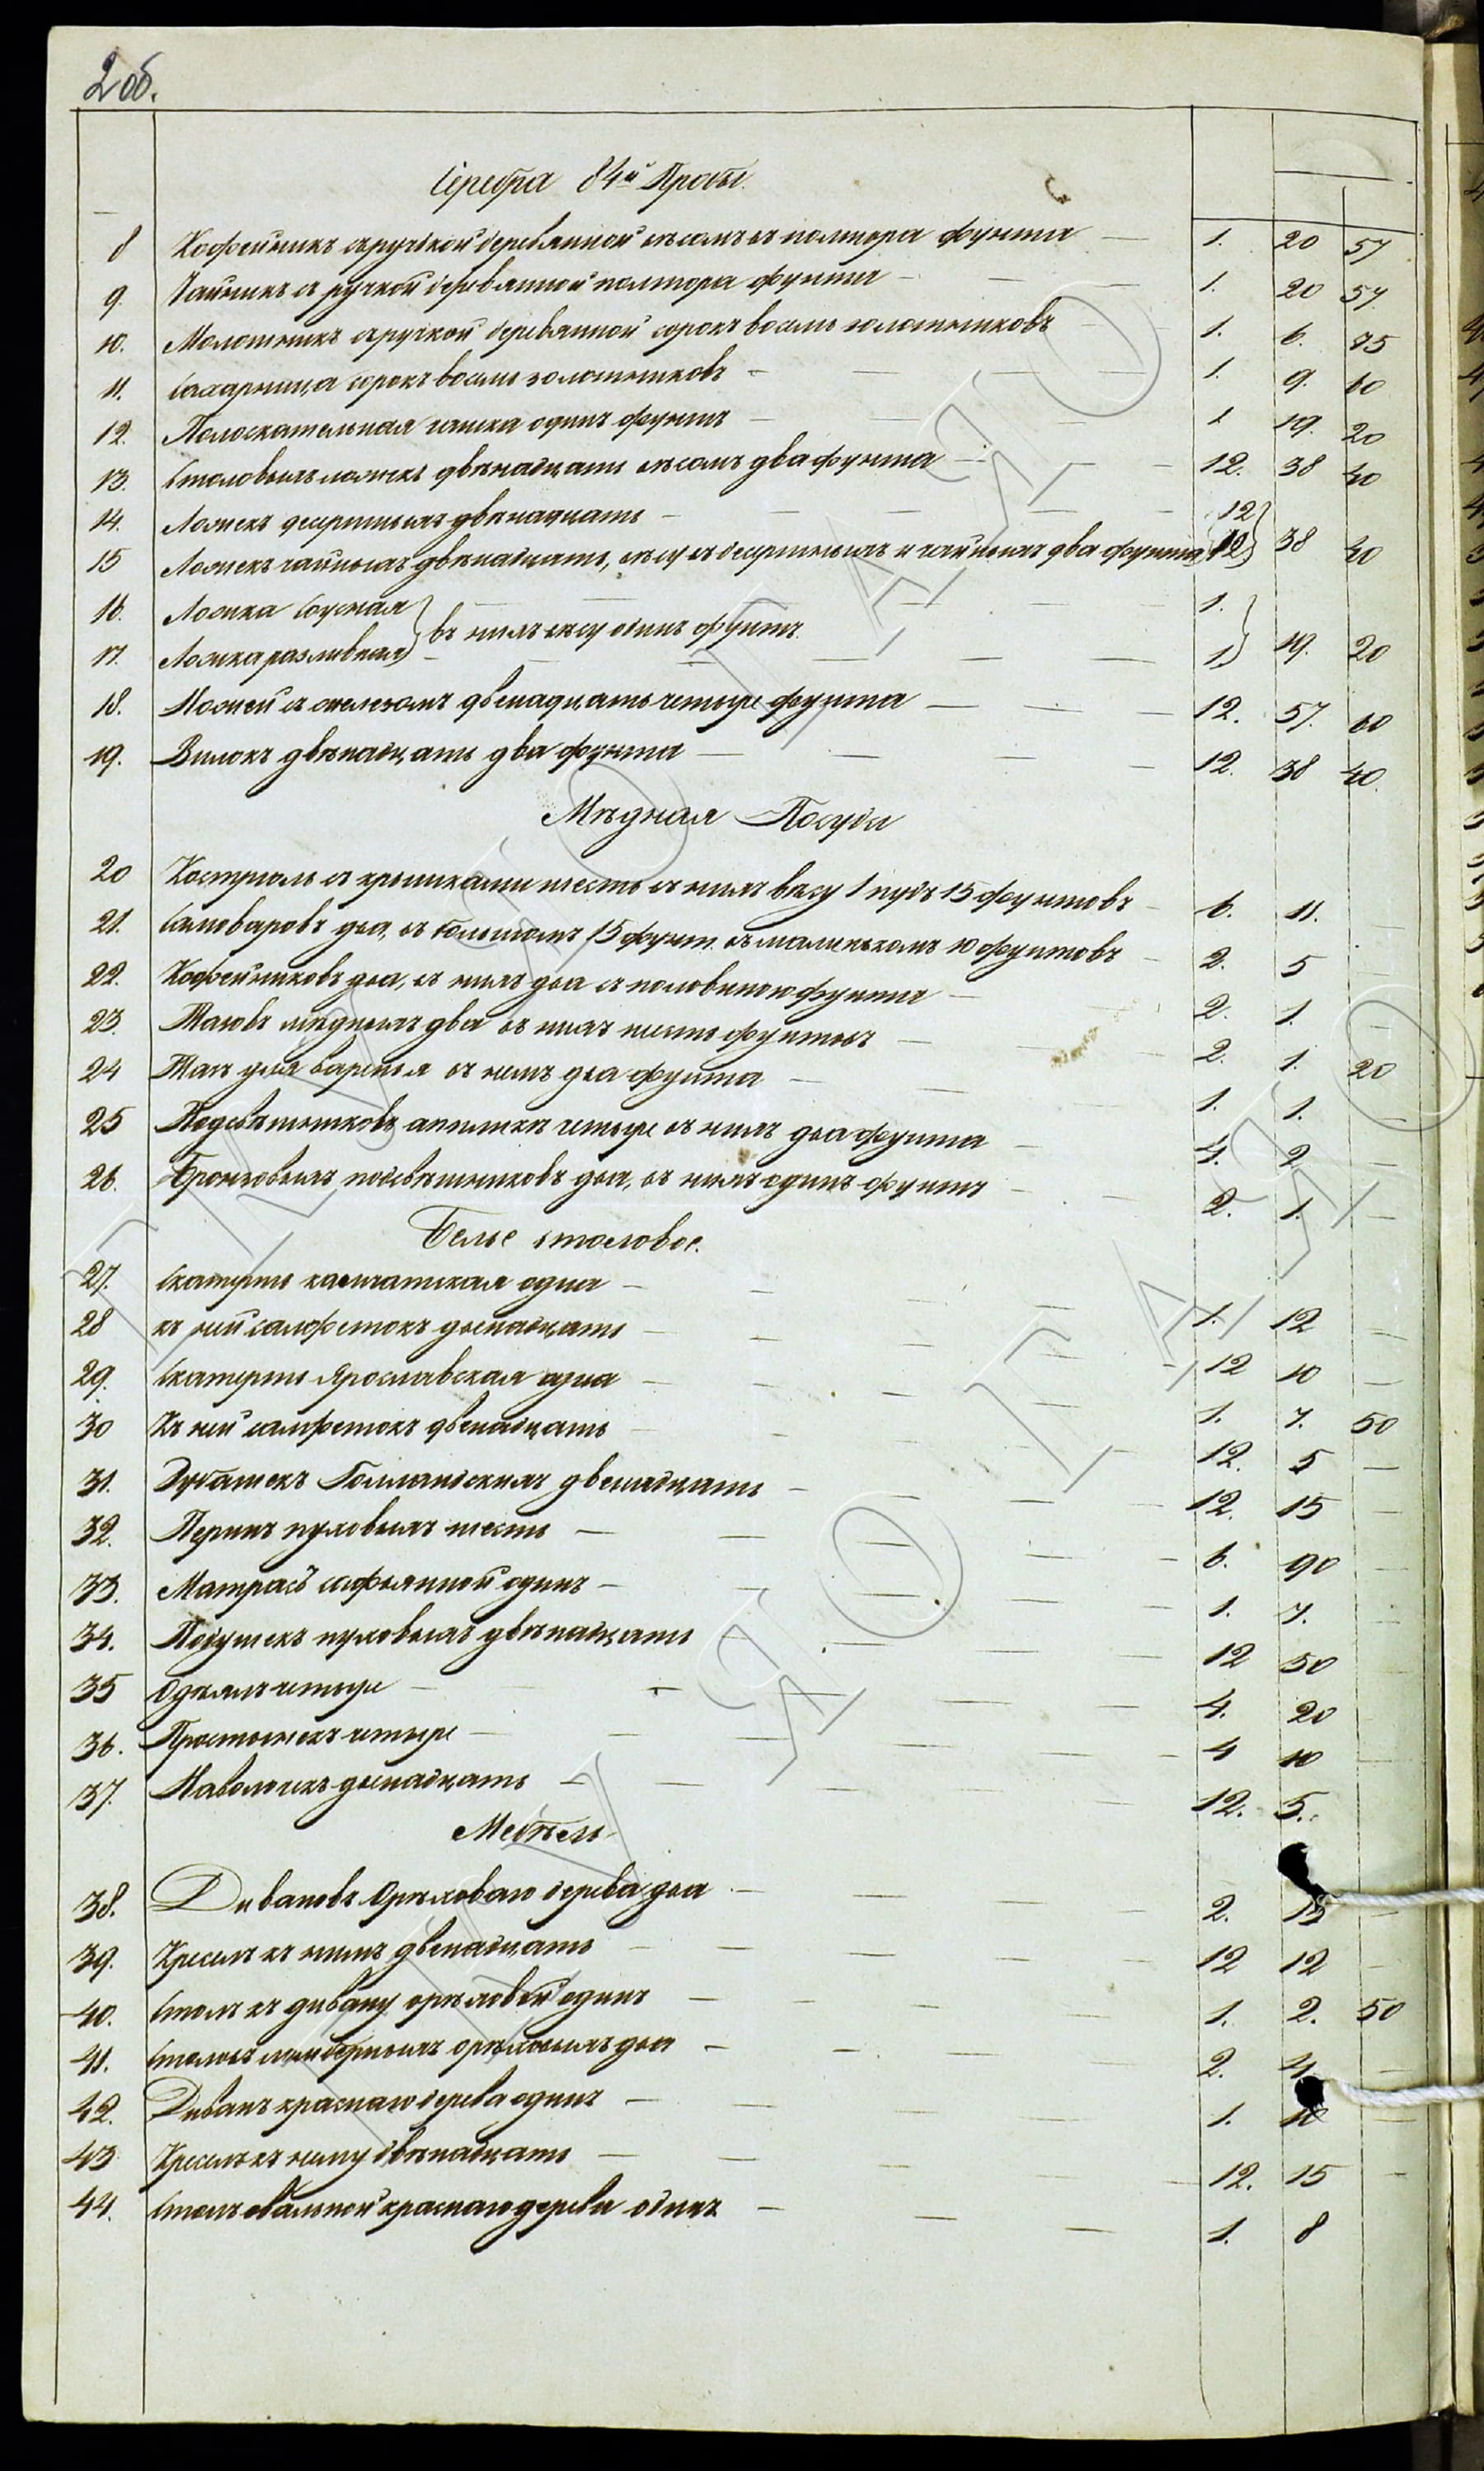 2 об.
Серебра 84й Пробы.
8 Кофейникъ съ ручкой деревянной вѣсомъ въ полтора фунта — 1. 20 57
9. Чайникъ съ ручкой деревянной полтора фунта — 1. 20 57
10. Молошникъ съ ручкой деревянной сорокъ восемь золотниковъ 1. 6. 75
11. Сахарница сорокъ восемь золотниковъ — 1. 9. 60
12. Полоскательная чашка одинъ фунтъ — 1 19. 20
13. Столовыхъ ложекъ двѣнадцать вѣсомъ два фунта — 12. 38 40
14. Ложекъ десертныхъ двѣнадцать — 12
15 Ложекъ чайныхъ двѣнадцать, вѣсу въ десертныхъ и чайныхъ два фунта 12 } 38 40
16. Ложка соусная } — 1.
въ нихъ вѣсу одинъ фунтъ.
17. Ложка разливная } — 1. } 19. 20
18. Ножей съ железомъ двенадцать четыре фунта — 12. 57. 60
19. Вилокъ двѣнадцать два фунта — 12. 38 40.
Мѣдная Посуда
20 Кострюль съ крышками шесть въ нихъ вѣсу 1 пудъ 15 фунтовъ — 6. 11.
21. Самоваровъ два, въ большомъ 15 фунт. въ маленькомъ 10 фунтовъ — 2. 5 —
22. Кофейниковъ два, въ нихъ два съ половиною фунта — 2. 1. —
23. Тазовъ мѣдныхъ два въ нихъ шесть фунтовъ — 2. 1. 20
24 Тазъ для варенья въ немъ два фунта — 1. 1. —
25 Подсвѣтниковъ аплике четыре въ нихъ два фунта — 4. 2 —
26. Бронзовыхъ подсвѣтниковъ два, въ нихъ одинъ фунтъ — 2. 1. —
Белье столовое.
27. Скатерть камчатская одна — 1. 12 —
28 къ ней салфетокъ двенадцать — 12 10 —
29. Скатерть Ярославская одна — 1. 7. 50
30 Къ ней салфетокъ двенадцать — 12. 5 —
31. Рубашекъ Голландскихъ двенадцать — 12. 15 —
32. Перинъ пуховыхъ шесть — 6. 90 —
33. Матрасъ сафьянной одинъ — 1. 7. —
34. Подушекъ пуховыхъ двѣнадцать 12 50 —
35 Одѣялъ четыре — 4. 20 —
36. Простынекъ четыре — 4 10 —
37. Наволочекъ двенадцать — 12. 5. —
Мебѣль
38. Дивановъ Орѣховаго дерева два — 2. 15 —
39. Креселъ къ нимъ двенадцать — 12 12 —
40. Столъ къ дивану орѣховый одинъ — 1. 2. 50
41. Столовъ ломберныхъ орѣховыхъ два — 2. 4. —
42. Диванъ краснаго дерева одинъ — 1. 10 —
43 Креселъ къ нему двѣнадцать — 12. 15 —
44. Столъ овальной краснаго дерева одинъ — 1. 8